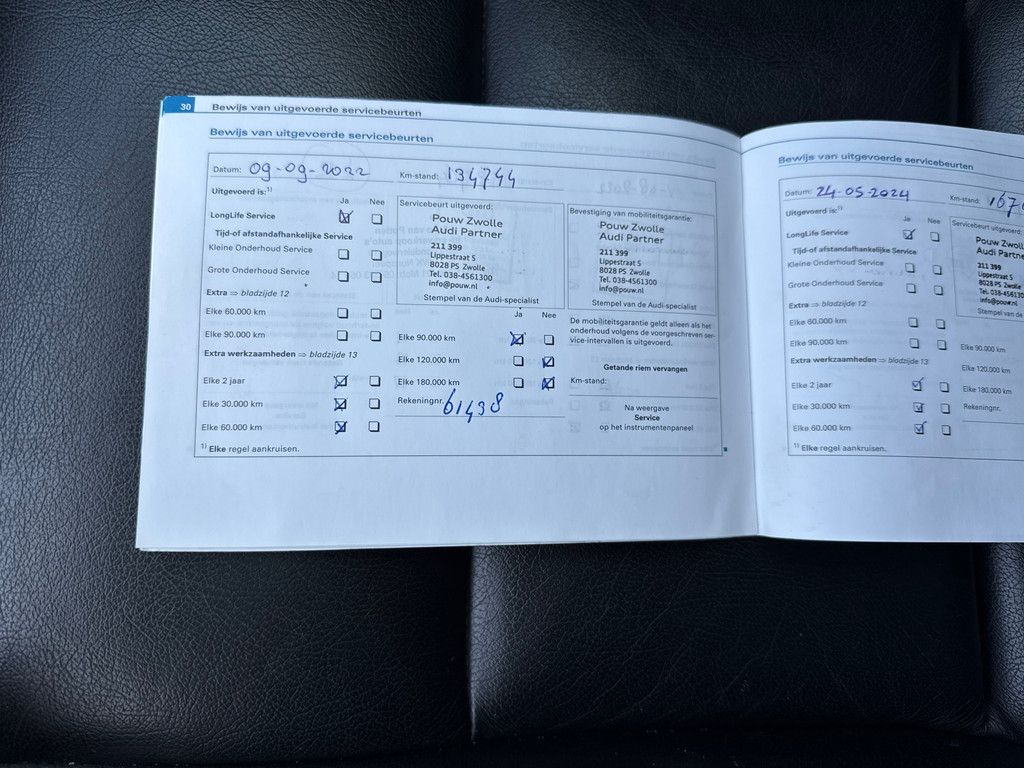 30 Bewijs van uitgevoerde servicebeurten
Bewijs van uitgevoerde servicebeurten
Datum: 09-09-2022 Km-stand: 134744
Uitgevoerd is:1)
Ja Nee
LongLife Service
Tijd-of afstandafhankelijke Service
Kleine Onderhoud Service
Grote Onderhoud Service
Extra ⇒ bladzijde 12
Elke 60.000 km
Elke 90.000 km
Extra werkzaamheden ⇒ bladzijde 13
Elke 2 jaar
Elke 30.000 km
Elke 60.000 km
1) Elke regel aankruisen.
Servicebeurt uitgevoerd:
Pouw Zwolle
Audi Partner
211 399
Lippestraat 5
8028 PS Zwolle
Tel. 038-4561300
info@pouw.nl
Stempel van de Audi-specialist
Ja Nee
Elke 90.000 km
Elke 120.000 km
Elke 180.000 km
Rekeningnr. 61438
Bevestiging van mobiliteitsgarantie:
Pouw Zwolle
Audi Partner
211 399
Lippestraat 5
8028 PS Zwolle
Tel. 038-4561300
info@pouw.nl
Stempel van de Audi-specialist
De mobiliteitsgarantie geldt alleen als het
onderhoud volgens de voorgeschreven ser-
vice-intervallen is uitgevoerd.
Getande riem vervangen
Km-stand:
Na weergave
Service
op het instrumentenpaneel
Bewijs van uitgevoerde servicebeurten
Datum: 24-05-2024 Km-stand: 167
Uitgevoerd is:1)
Ja Nee
LongLife Service
Tijd-of afstandafhankelijke Service
Kleine Onderhoud Service
Grote Onderhoud Service
Extra ⇒ bladzijde 12
Elke 60.000 km
Elke 90.000 km
Extra werkzaamheden ⇒ bladzijde 13
Elke 2 jaar
Elke 30.000 km
Elke 60.000 km
1) Elke regel aankruisen.
Servicebeurt uitgevoerd:
Pouw Zwol
Audi Partne
211 399
Lippestraat 5
8028 PS Zwolle
Tel. 038-456130
info@pouw.nl
Stempel van de
Elke 90.000 km
Elke 120.000 km
Elke 180.000 km
Rekeningnr.